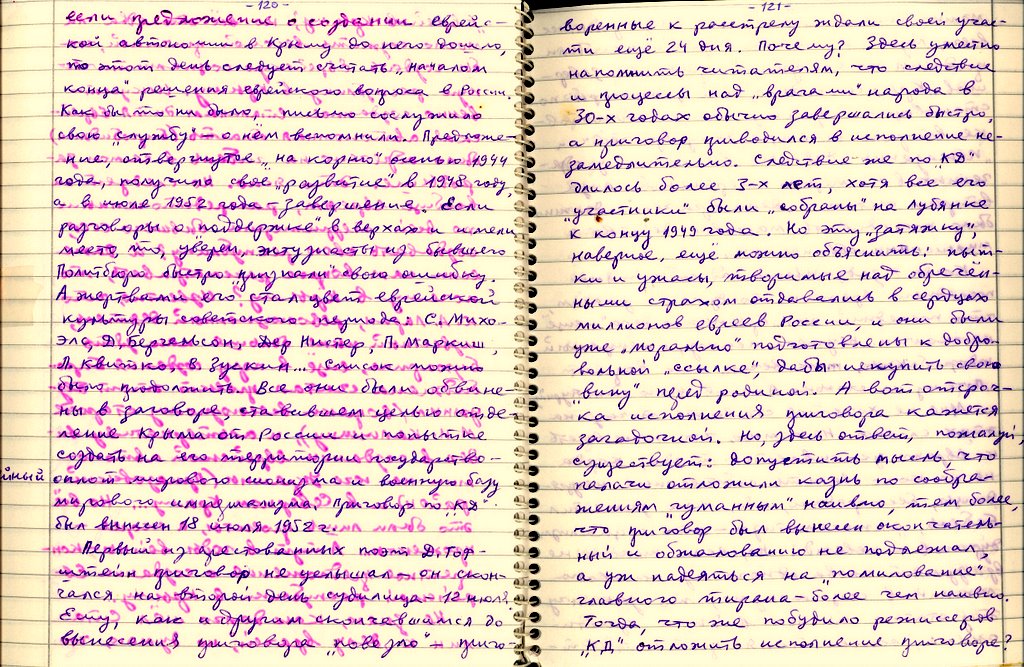 - 120 -
если предложение о создании еврейс-
кой автономии в Крыму до него дошло,
то этот день следует считать „началом
конца" решения еврейского вопроса в России.
Как бы то ни было, письмо сослужило
свою „службу" – о нём вспомнили. Предложе-
ние, „отвергнутое „на корню" осенью 1944
года, получило своё „развитие" в 1948 году,
а в июле 1952 года – завершение. Если
разговоры о поддержке в верхах и имели
место, то, уверен, энтузиасты из бывшего
Политбюро быстро признали свою ошибку.
А жертвами его стал цвет еврейской
культуры советского периода: С. Михо-
элс, Д. Бергельсон, Дер Нистер, П. Маркиш,
Л. Квитко, В. Зускин... Список можно
было продолжить. Все они были обвине-
ны в заговоре, ставившем целью отде-
ление Крыма от России и попытке
создать на его территории государство-
йный
оплот мирового сионизма и военную базу
мирового империализма. Приговор по „КД"
был вынесен 18 июля 1952 г.
Первый из арестованных поэт Д. Гоф-
штейн приговор не услышал – он скон-
чался на второй день судилища – 12 июля.
Ему, как и другим скончавшимся до
вынесения приговора „повезло" – приго-
- 121 -
воренные к расстрелу ждали своей учас-
ти ещё 24 дня. Почему? Здесь уместно
напомнить читателям, что следствие
и процессы над „врагами" народа в
30-х годах обычно завершались быстро,
а приговор приводился в исполнение не-
замедлительно. Следствие же по „КД"
длилось более 3-х лет, хотя все его
„участники" были „собраны" на Лубянке
к концу 1949 года. Но эту „затяжку",
наверное, ещё можно объяснить: пыт-
ки и ужасы, творимые над обречён-
ными страхом отдавались в сердцах
миллионов евреев России, и они были
уже „морально" подготовлены к добро-
вольной „ссылке", дабы искупить свою
„вину" перед родиной. А вот отсроч-
ка исполнения приговора кажется
загадочной. Но, здесь ответ, пожалуй,
существует: допустить мысль, что
палачи отложили казнь по сообра-
жениям „гуманным" наивно, тем более,
что приговор был вынесен окончатель-
ный и обжалованию не подлежал,
а уж надеяться на „помилование"
главного тирана – более чем наивно.
Тогда, что же побудило режиссёров
„КД" отложить исполнение приговора?